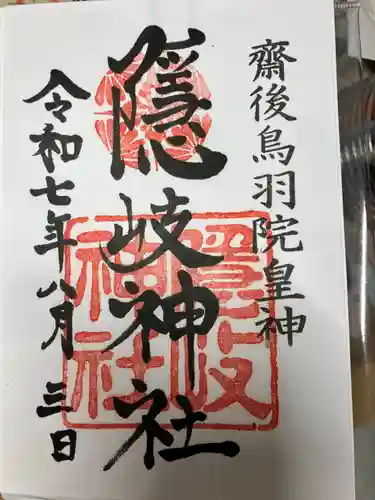 齋後鳥羽院皇神
隠岐神社
隠岐神社
令和七年八月三日